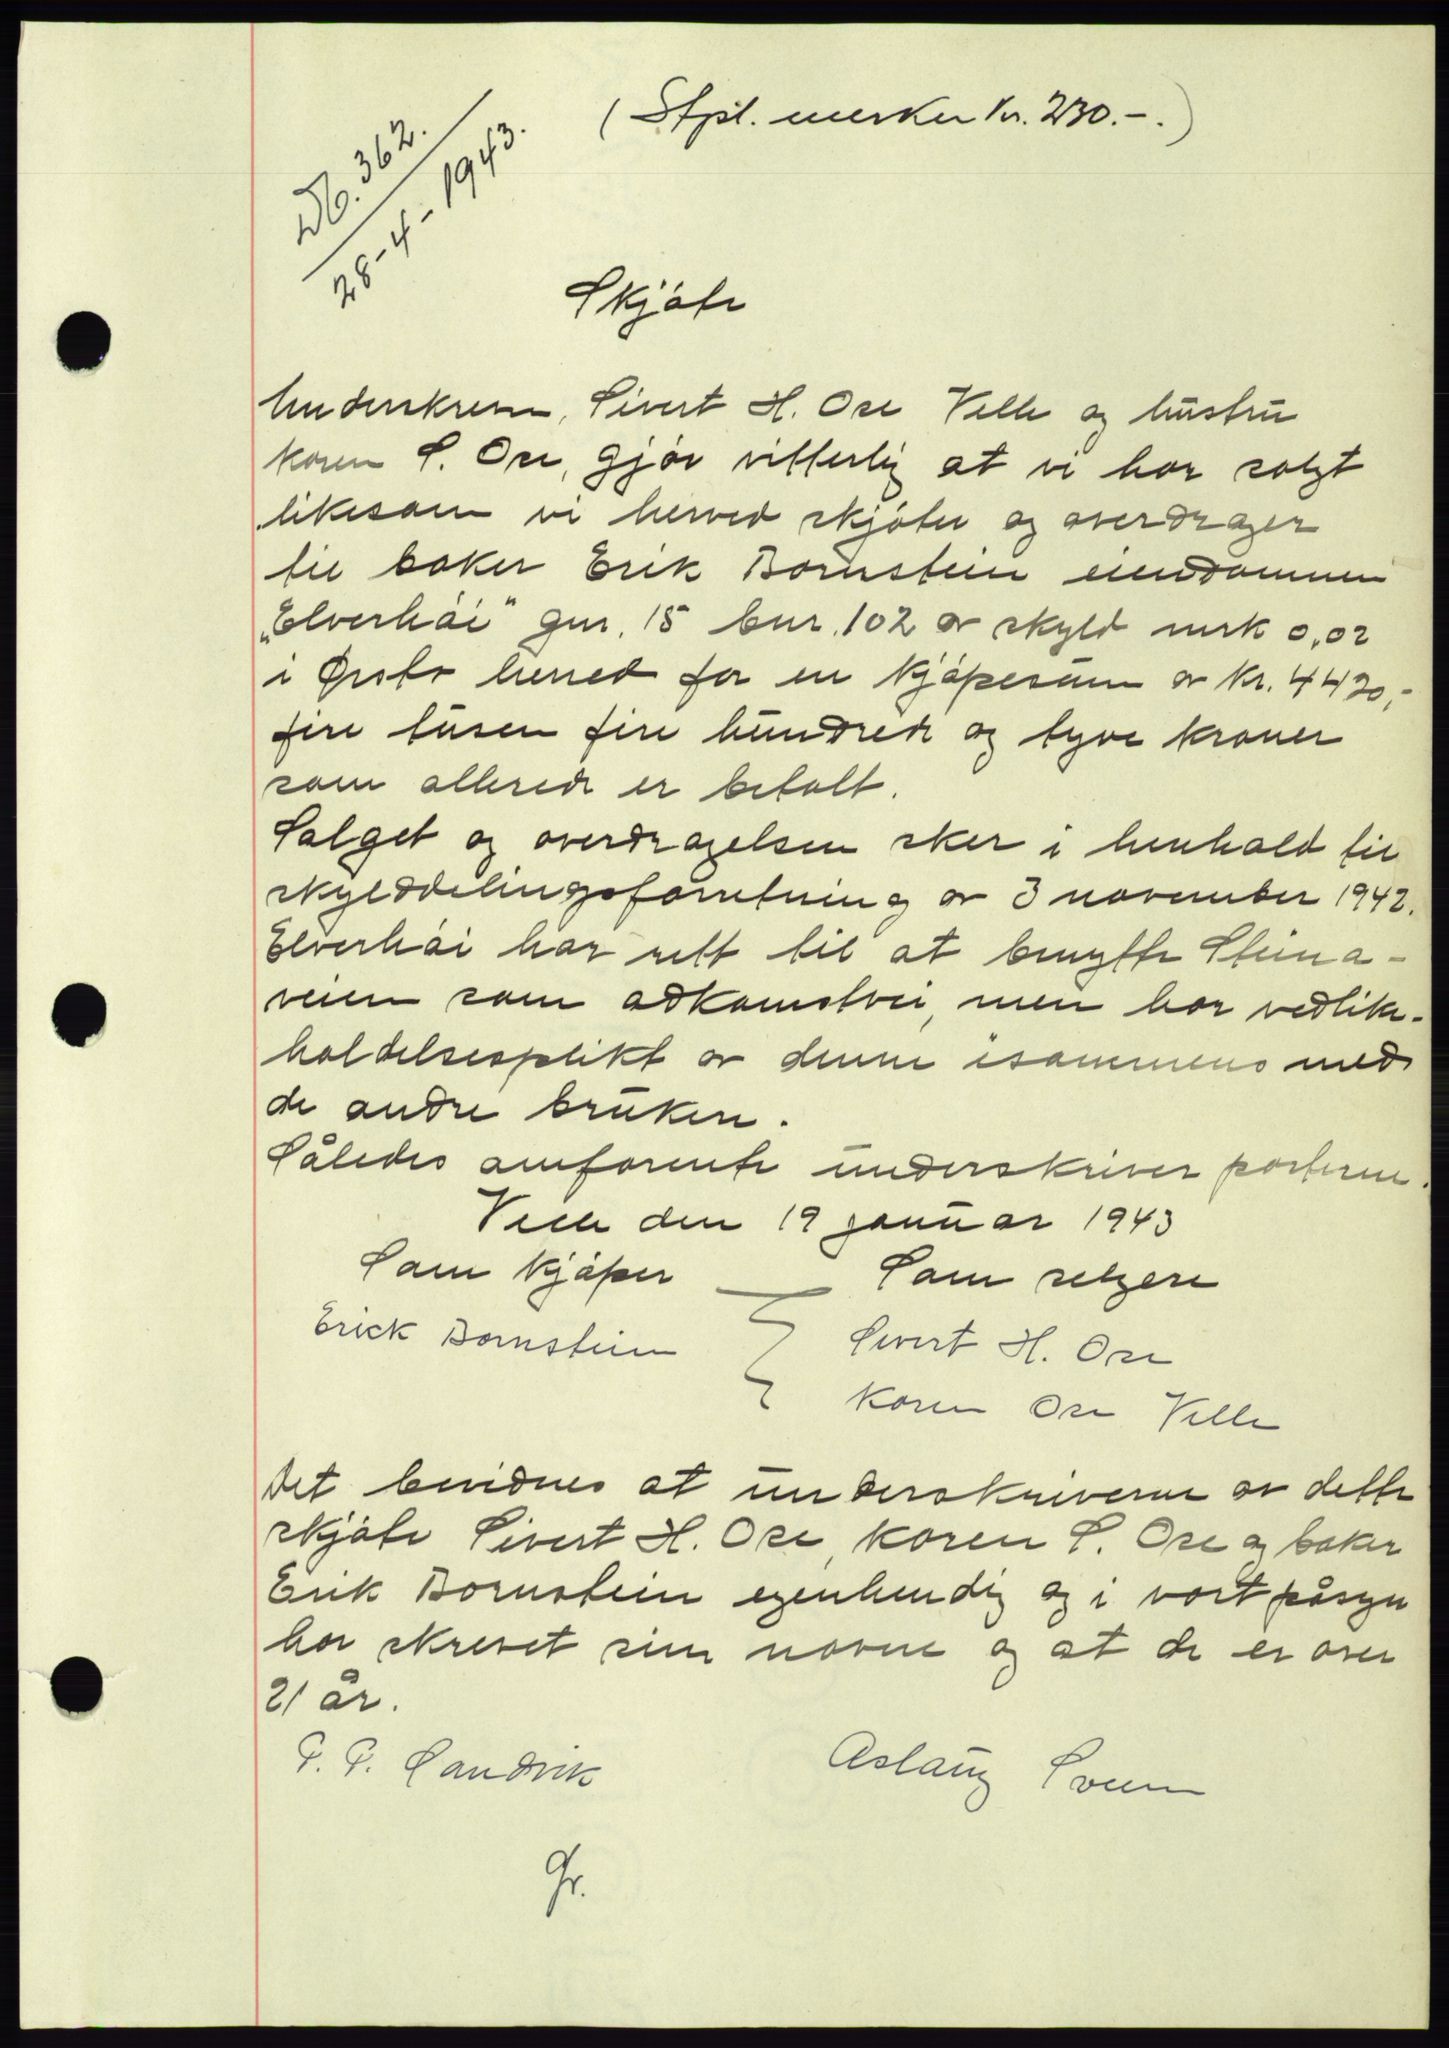 (Stpl. merker kr. 230.-.)
Db. 362.
28-4-1943.
Skjøte
Underskrevne, Sivert H. Ose Velle og hustru
Karen S. Ose, gjør vitterlig at vi har solgt
likesom vi herved skjøter og overdrager
til baker Erik Bornstein eiendommen
"Elverhøi" gnr. 15 bnr. 102 av skyld mrk 0,02
i Ørsta herred for en kjøpesum av kr. 4420,-
fire tusen fire hundrede og tyve kroner
som allerede er betalt.
Salget og overdragelsen sker i henhold til
skylddelingsforretning av 3 november 1942.
Elverhøi har rett til at benytte Steina-
veien som adkomstvei, men har vedlike-
holdelsesplikt av denne isammens med
de andre brukere.
Således omforente underskriver partene.
Velle den 19 januar 1943
Som kjøper Som selgere
Erick Bornstein Sivert H. Ose
Karen Ose Velle
Det bevidnes at underskriverne av dette
skjøte Sivert H. Ose, Karen S. Ose og baker
Erik Bornstein egenhendig og i vort påsyn
har skrevet sine navne og at de er over
21 år.
P. P. Sandvik Aslaug Sveen
Gr.